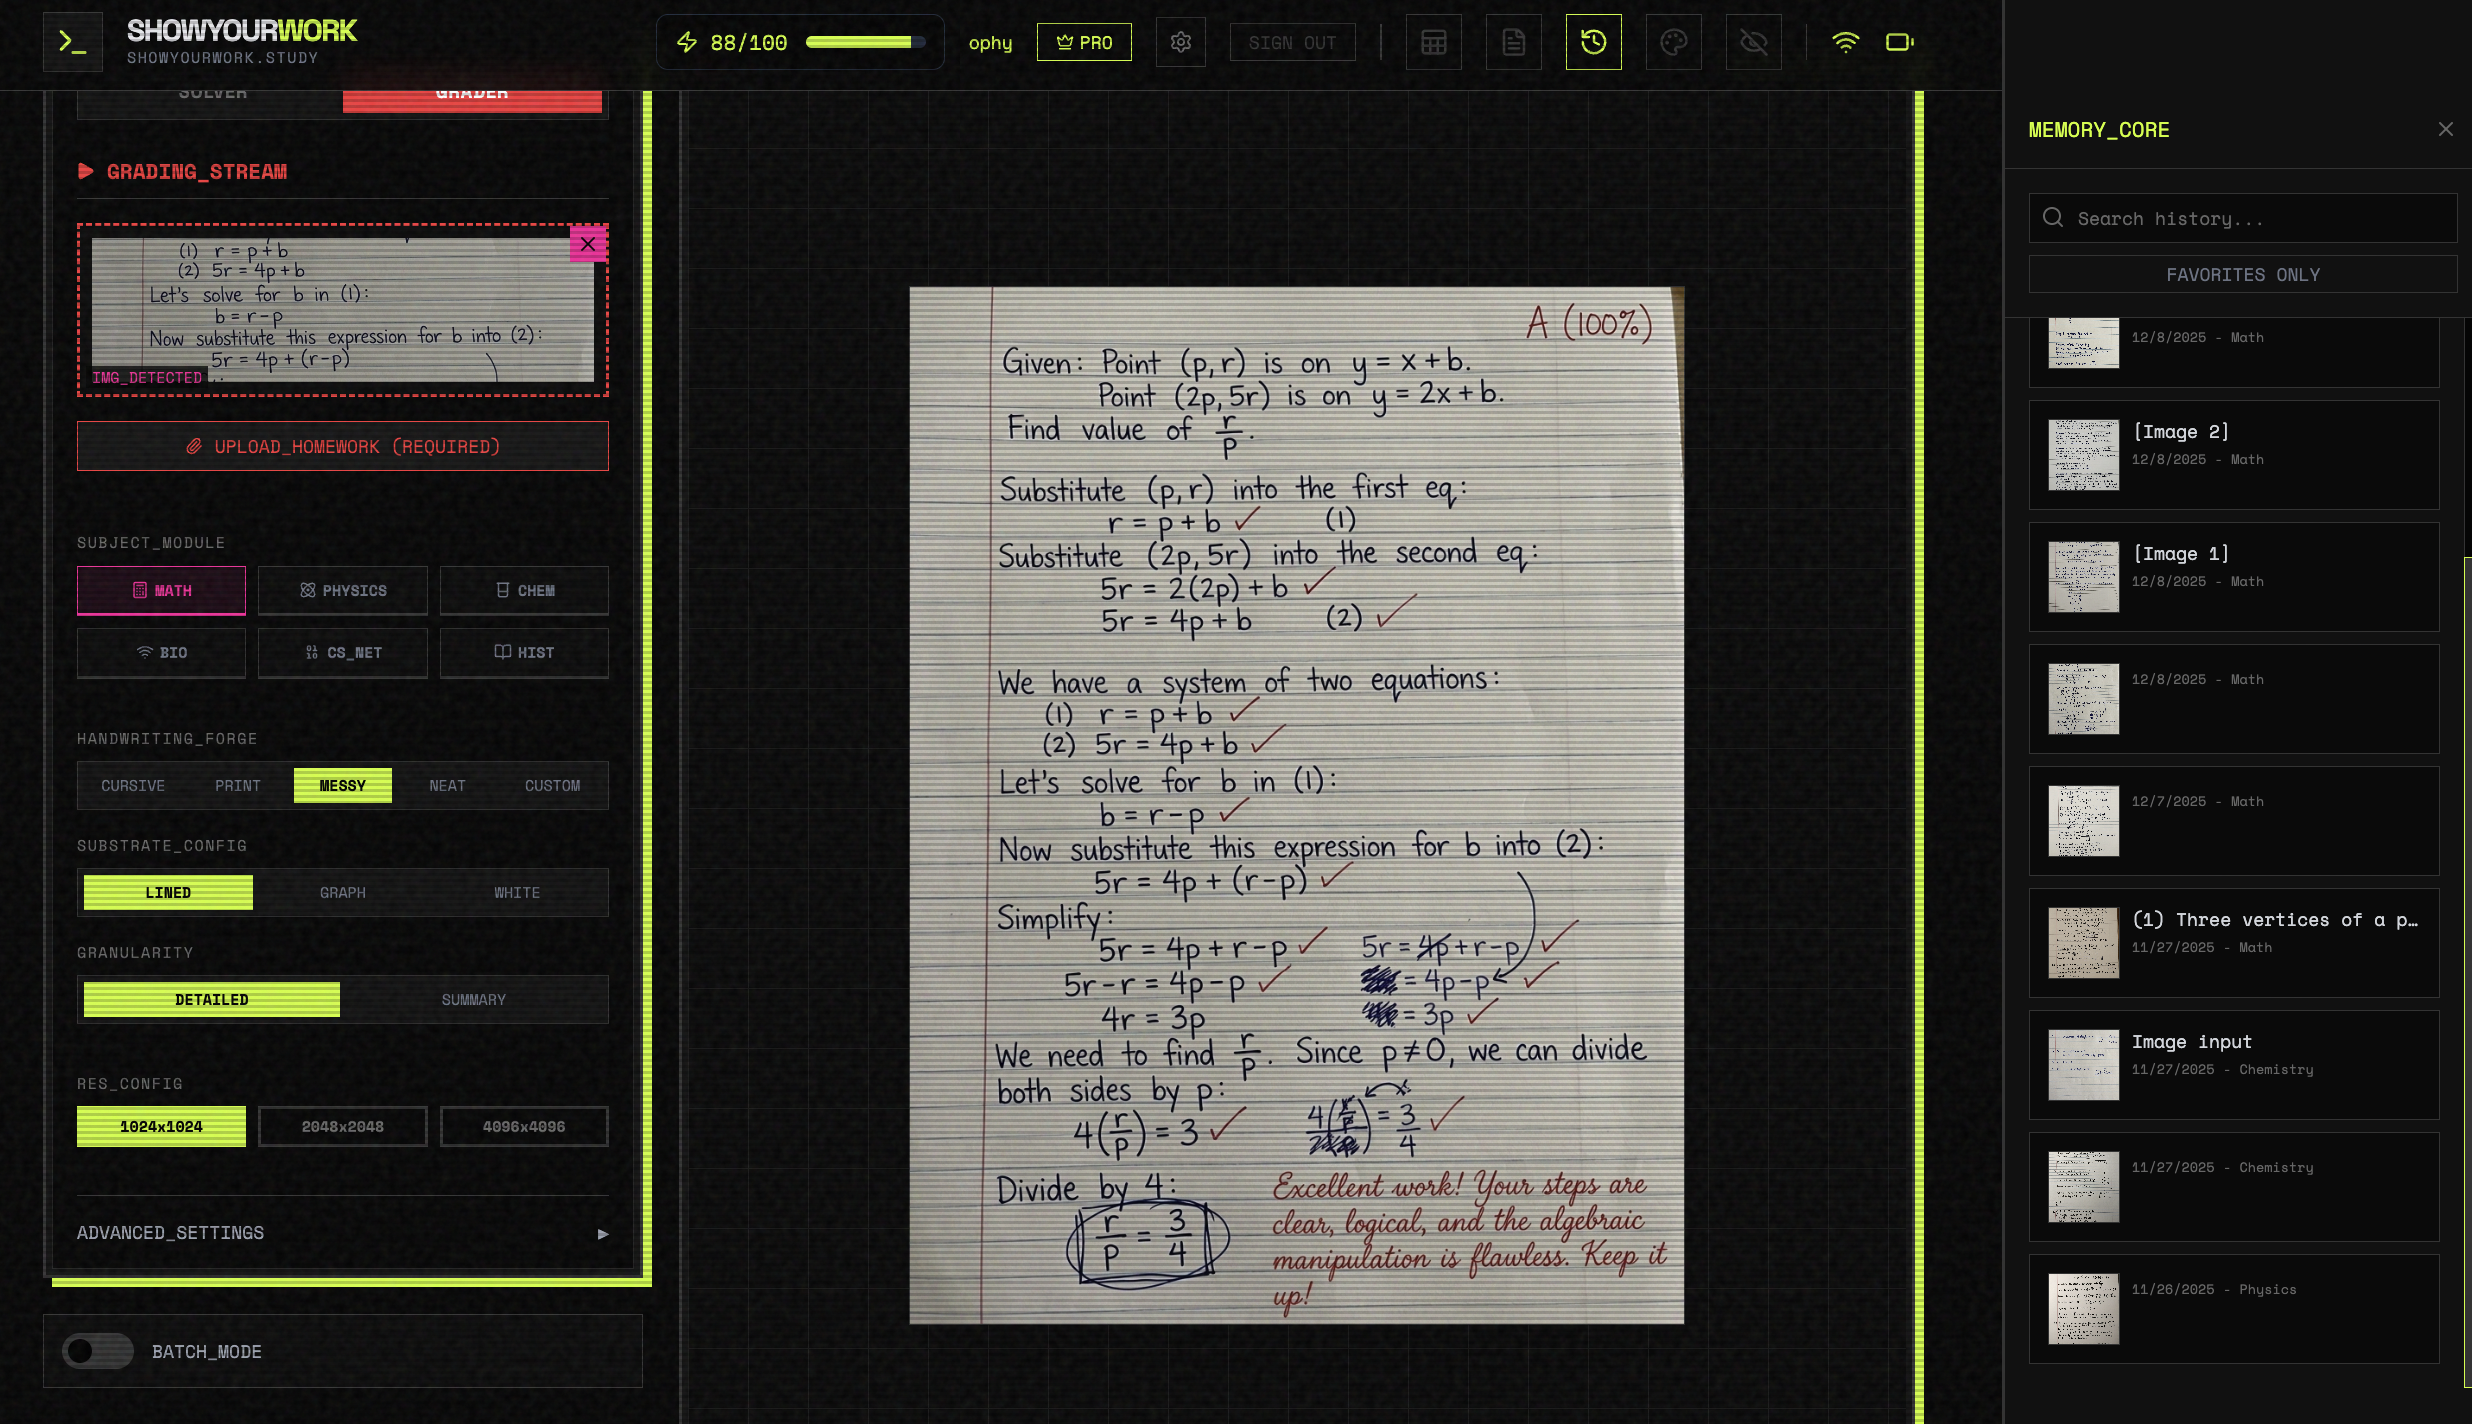 SHOWYOURWORK
SHOWYOURWORK.STUDY
88/100
ophy
PRO
SIGN OUT
SOLVER
GRADER
GRADING_STREAM
(1) r = p + b
(2) 5r = 4p + b
Let's solve for b in (1):
b = r - p
Now substitute this expression for b into (2):
5r = 4p + (r-p)
IMG_DETECTED
UPLOAD_HOMEWORK (REQUIRED)
SUBJECT_MODULE
MATH
PHYSICS
CHEM
BIO
CS_NET
HIST
HANDWRITING_FORGE
CURSIVE
PRINT
MESSY
NEAT
CUSTOM
SUBSTRATE_CONFIG
LINED
GRAPH
WHITE
GRANULARITY
DETAILED
SUMMARY
RES_CONFIG
1024x1024
2048x2048
4096x4096
ADVANCED_SETTINGS
BATCH_MODE
A (100%)
Given: Point (p,r) is on y = x + b.
Point (2p, 5r) is on y = 2x + b.
Find value of r/p.
Substitute (p,r) into the first eq:
r = p + b ✓ (1)
Substitute (2p, 5r) into the second eq:
5r = 2(2p) + b ✓
5r = 4p + b (2) ✓
We have a system of two equations:
(1) r = p + b ✓
(2) 5r = 4p + b ✓
Let's solve for b in (1):
b = r - p ✓
Now substitute this expression for b into (2):
5r = 4p + (r-p) ✓
Simplify:
5r = 4p + r - p ✓ 5r = 4p + r - p ✓
5r - r = 4p - p ✓ = 4p - p ✓
4r = 3p = 3p ✓
We need to find r/p. Since p ≠ 0, we can divide
both sides by p:
4(r/p) = 3 ✓ 4(r/p) = 3/4 ✓
Divide by 4:
r/p = 3/4
Excellent work! Your steps are
clear, logical, and the algebraic
manipulation is flawless. Keep it
up!
MEMORY_CORE
Search history...
FAVORITES ONLY
12/8/2025 - Math
[Image 2]
12/8/2025 - Math
[Image 1]
12/8/2025 - Math
12/8/2025 - Math
12/7/2025 - Math
(1) Three vertices of a p…
11/27/2025 - Math
Image input
11/27/2025 - Chemistry
11/27/2025 - Chemistry
11/26/2025 - Physics